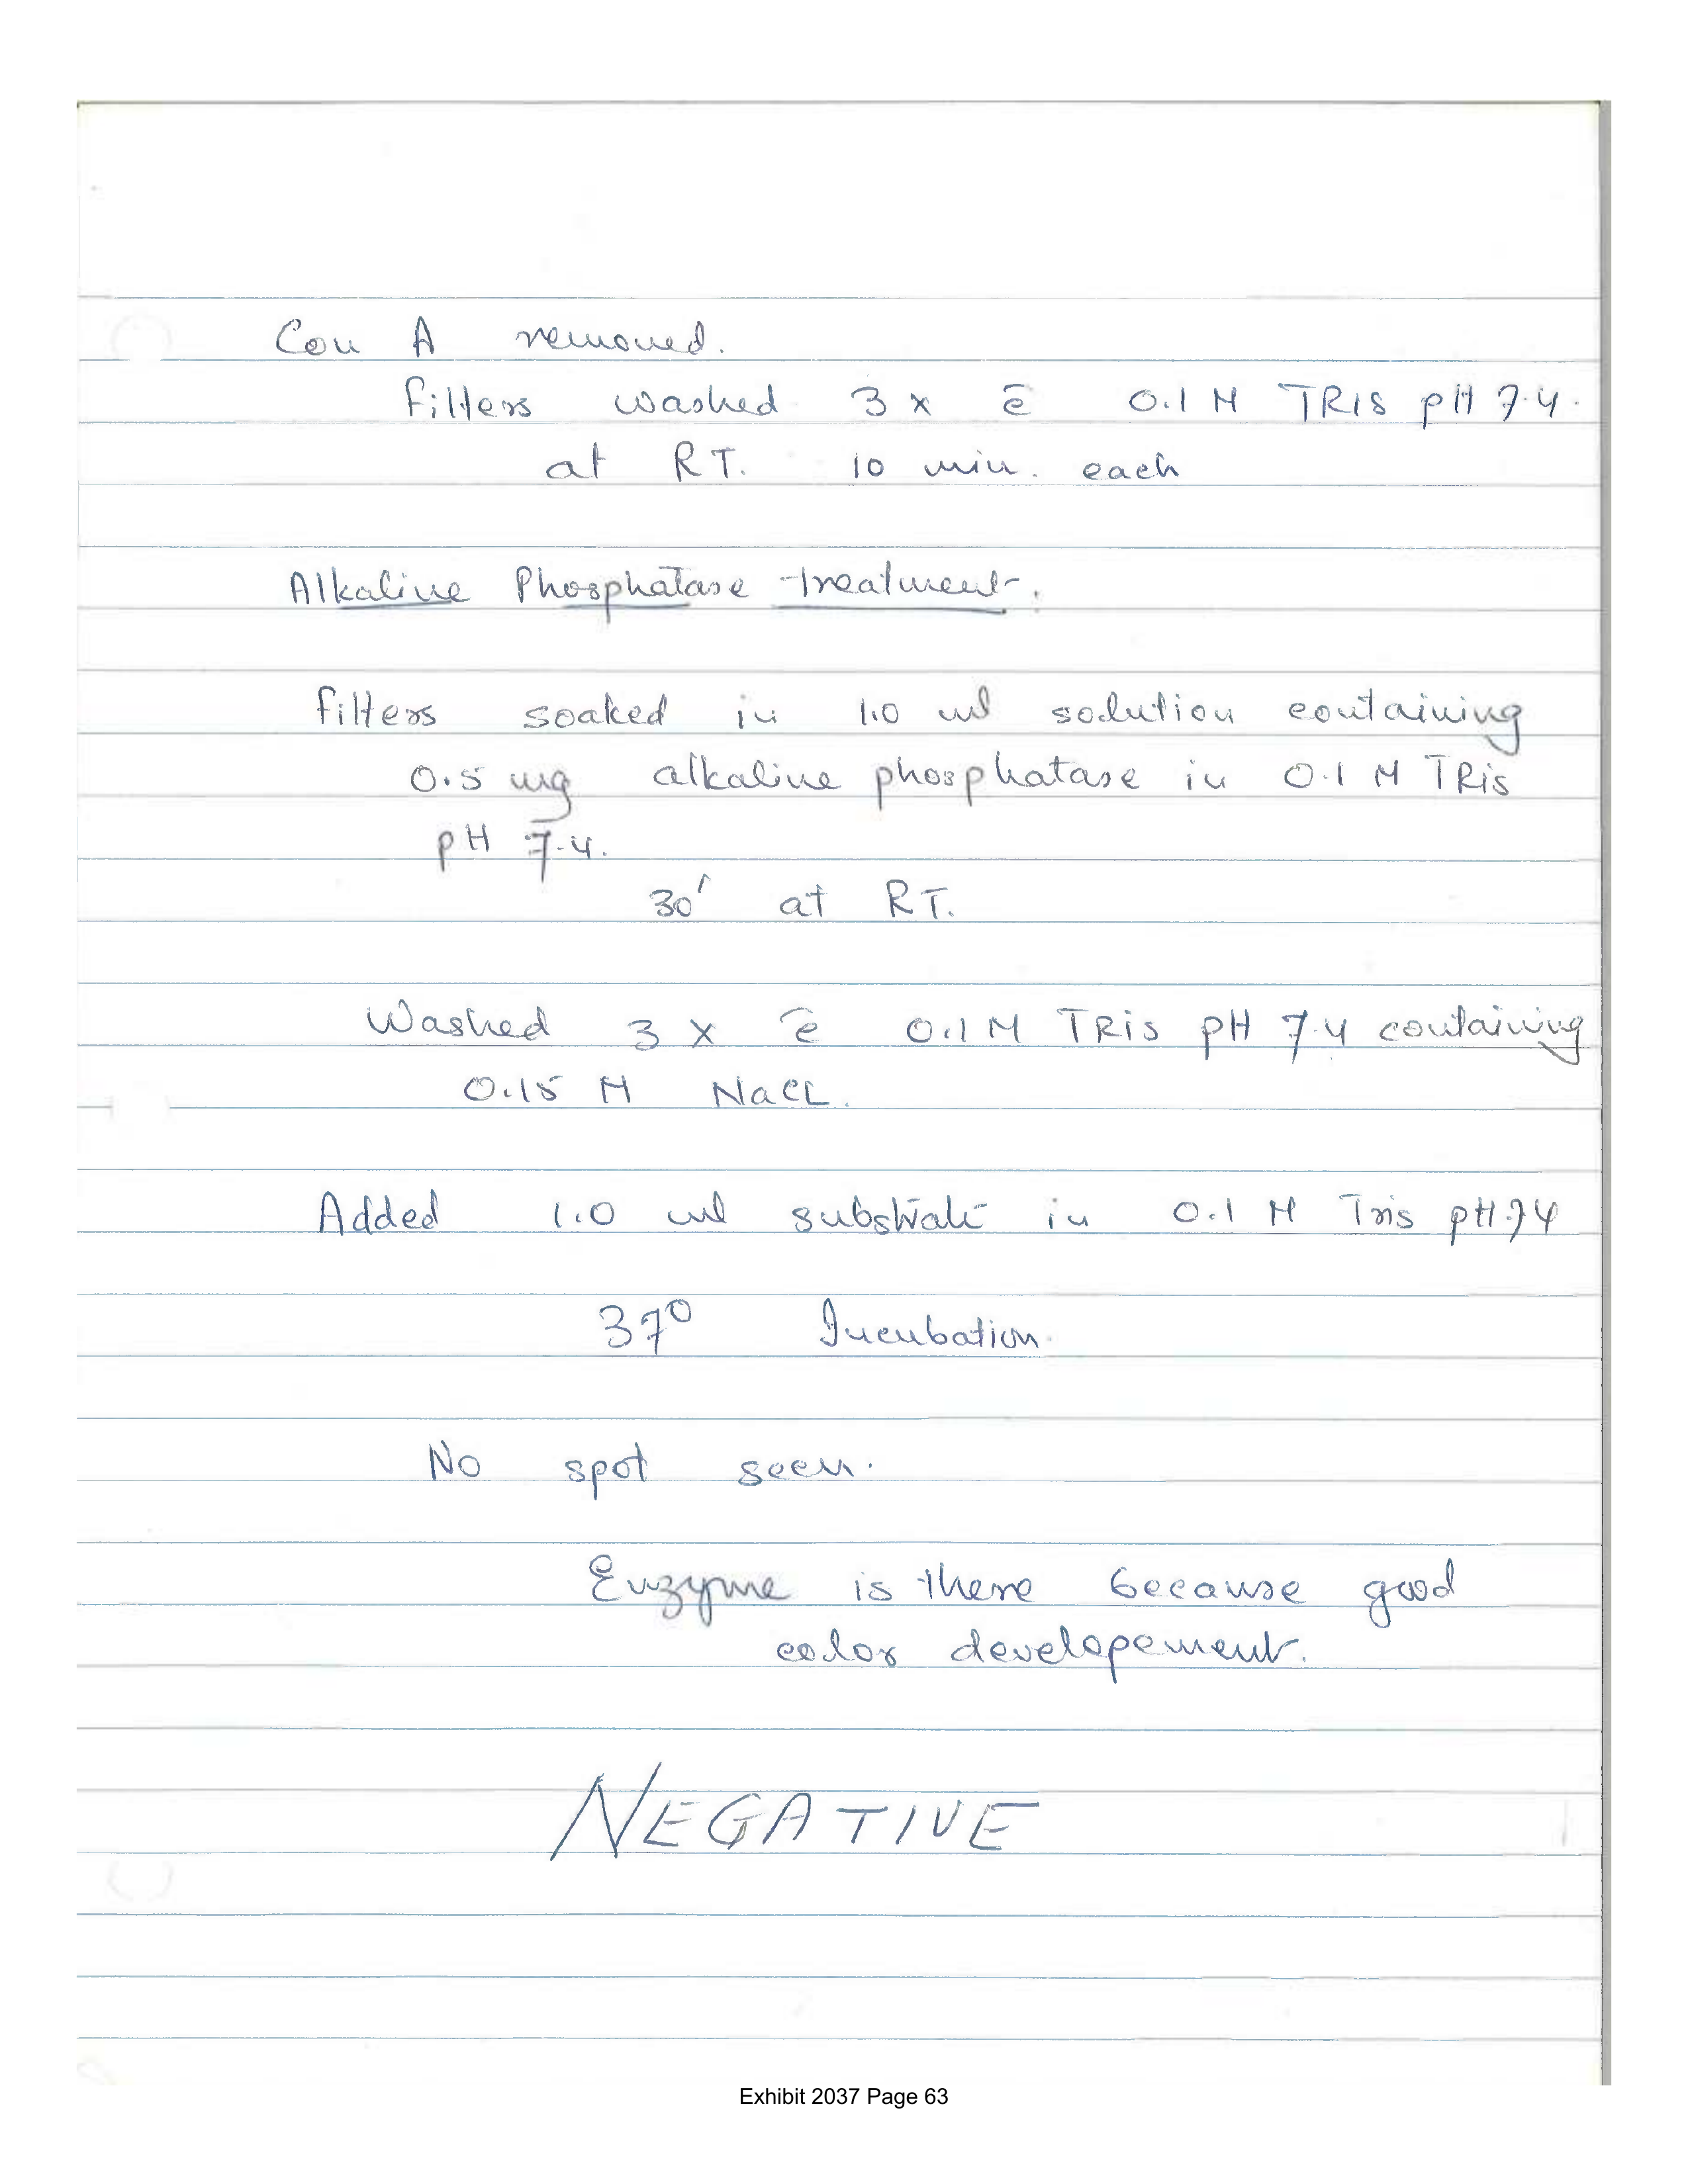 Con A removed.
filters washed 3 x c̄ 0.1 M TRIS pH 7.4.
at RT. 10 min. each
Alkaline Phosphatase treatment.
filters soaked in 1.0 ml solution containing
0.5 mg alkaline phosphatase in 0.1 M TRis
pH 7.4.
30' at RT.
Washed 3 x c̄ 0.1 M TRis pH 7.4 containing
0.15 M NaCL.
Added 1.0 ml substrate in 0.1 M Tris pH 7.4
37° Incubation.
No spot seen.
Enzyme is there because good
color developement.
NEGATIVE
Exhibit 2037 Page 63